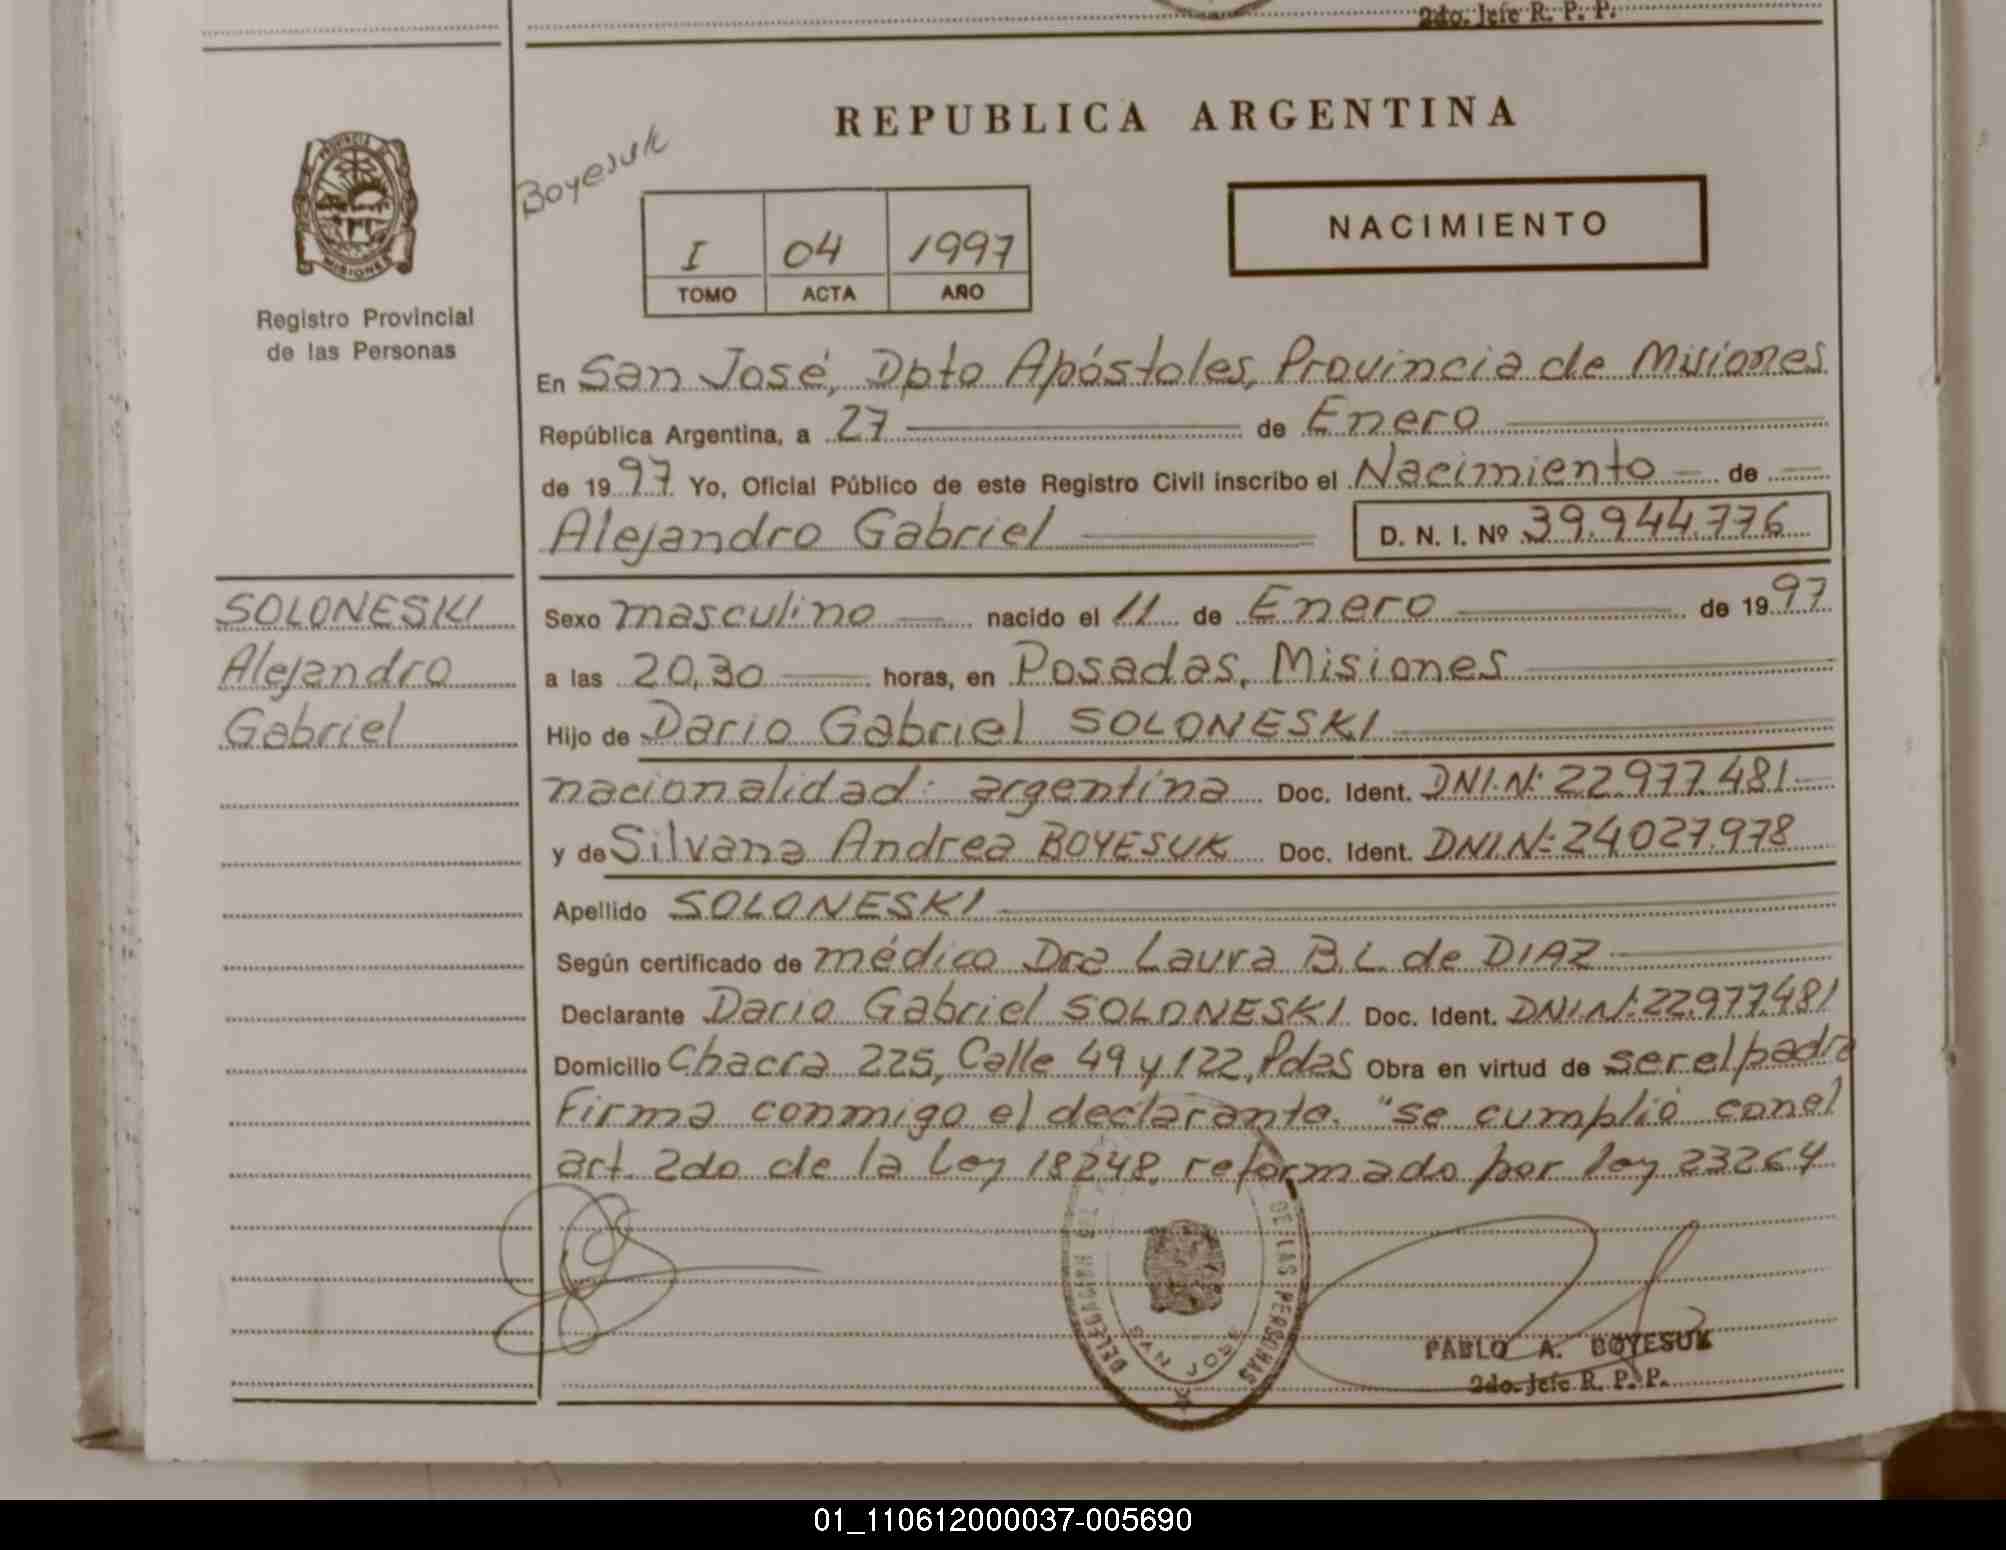 2do. Jefe R. P. P.
PROVINCIA
MISIONES
Registro Provincial
de las Personas
Boyesuk
REPUBLICA ARGENTINA
I 04 1997
TOMO ACTA AÑO
NACIMIENTO
En San José, Dpto Apóstoles, Provincia de Misiones
República Argentina, a 27 de Enero
de 1997 Yo, Oficial Público de este Registro Civil inscribo el Nacimiento de
Alejandro Gabriel D. N. I. Nº 39.944.776
SOLONESKI
Alejandro
Gabriel
Sexo masculino nacido el 11 de Enero de 1997
a las 20,30 horas, en Posadas, Misiones
Hijo de Dario Gabriel SOLONESKI
nacionalidad: argentina Doc. Ident. DNI.Nº 22.977.481
y de Silvana Andrea BOYESUK Doc. Ident. DNI.Nº 24.027.978
Apellido SOLONESKI
Según certificado de médico Dra Laura B.L. de DIAZ
Declarante Dario Gabriel SOLONESKI Doc. Ident. DNI.Nº 22.977.481
Domicilio Chacra 225, Calle 49 y 122, Pdas Obra en virtud de ser el padre
Firma conmigo el declarante. "se cumplió con el
art. 2do de la Ley 18248, reformado por ley 23264
DE LAS PERSONAS
SAN JOSE
PABLO A. BOYESUK
2do. Jefe R. P. P.
01_110612000037-005690